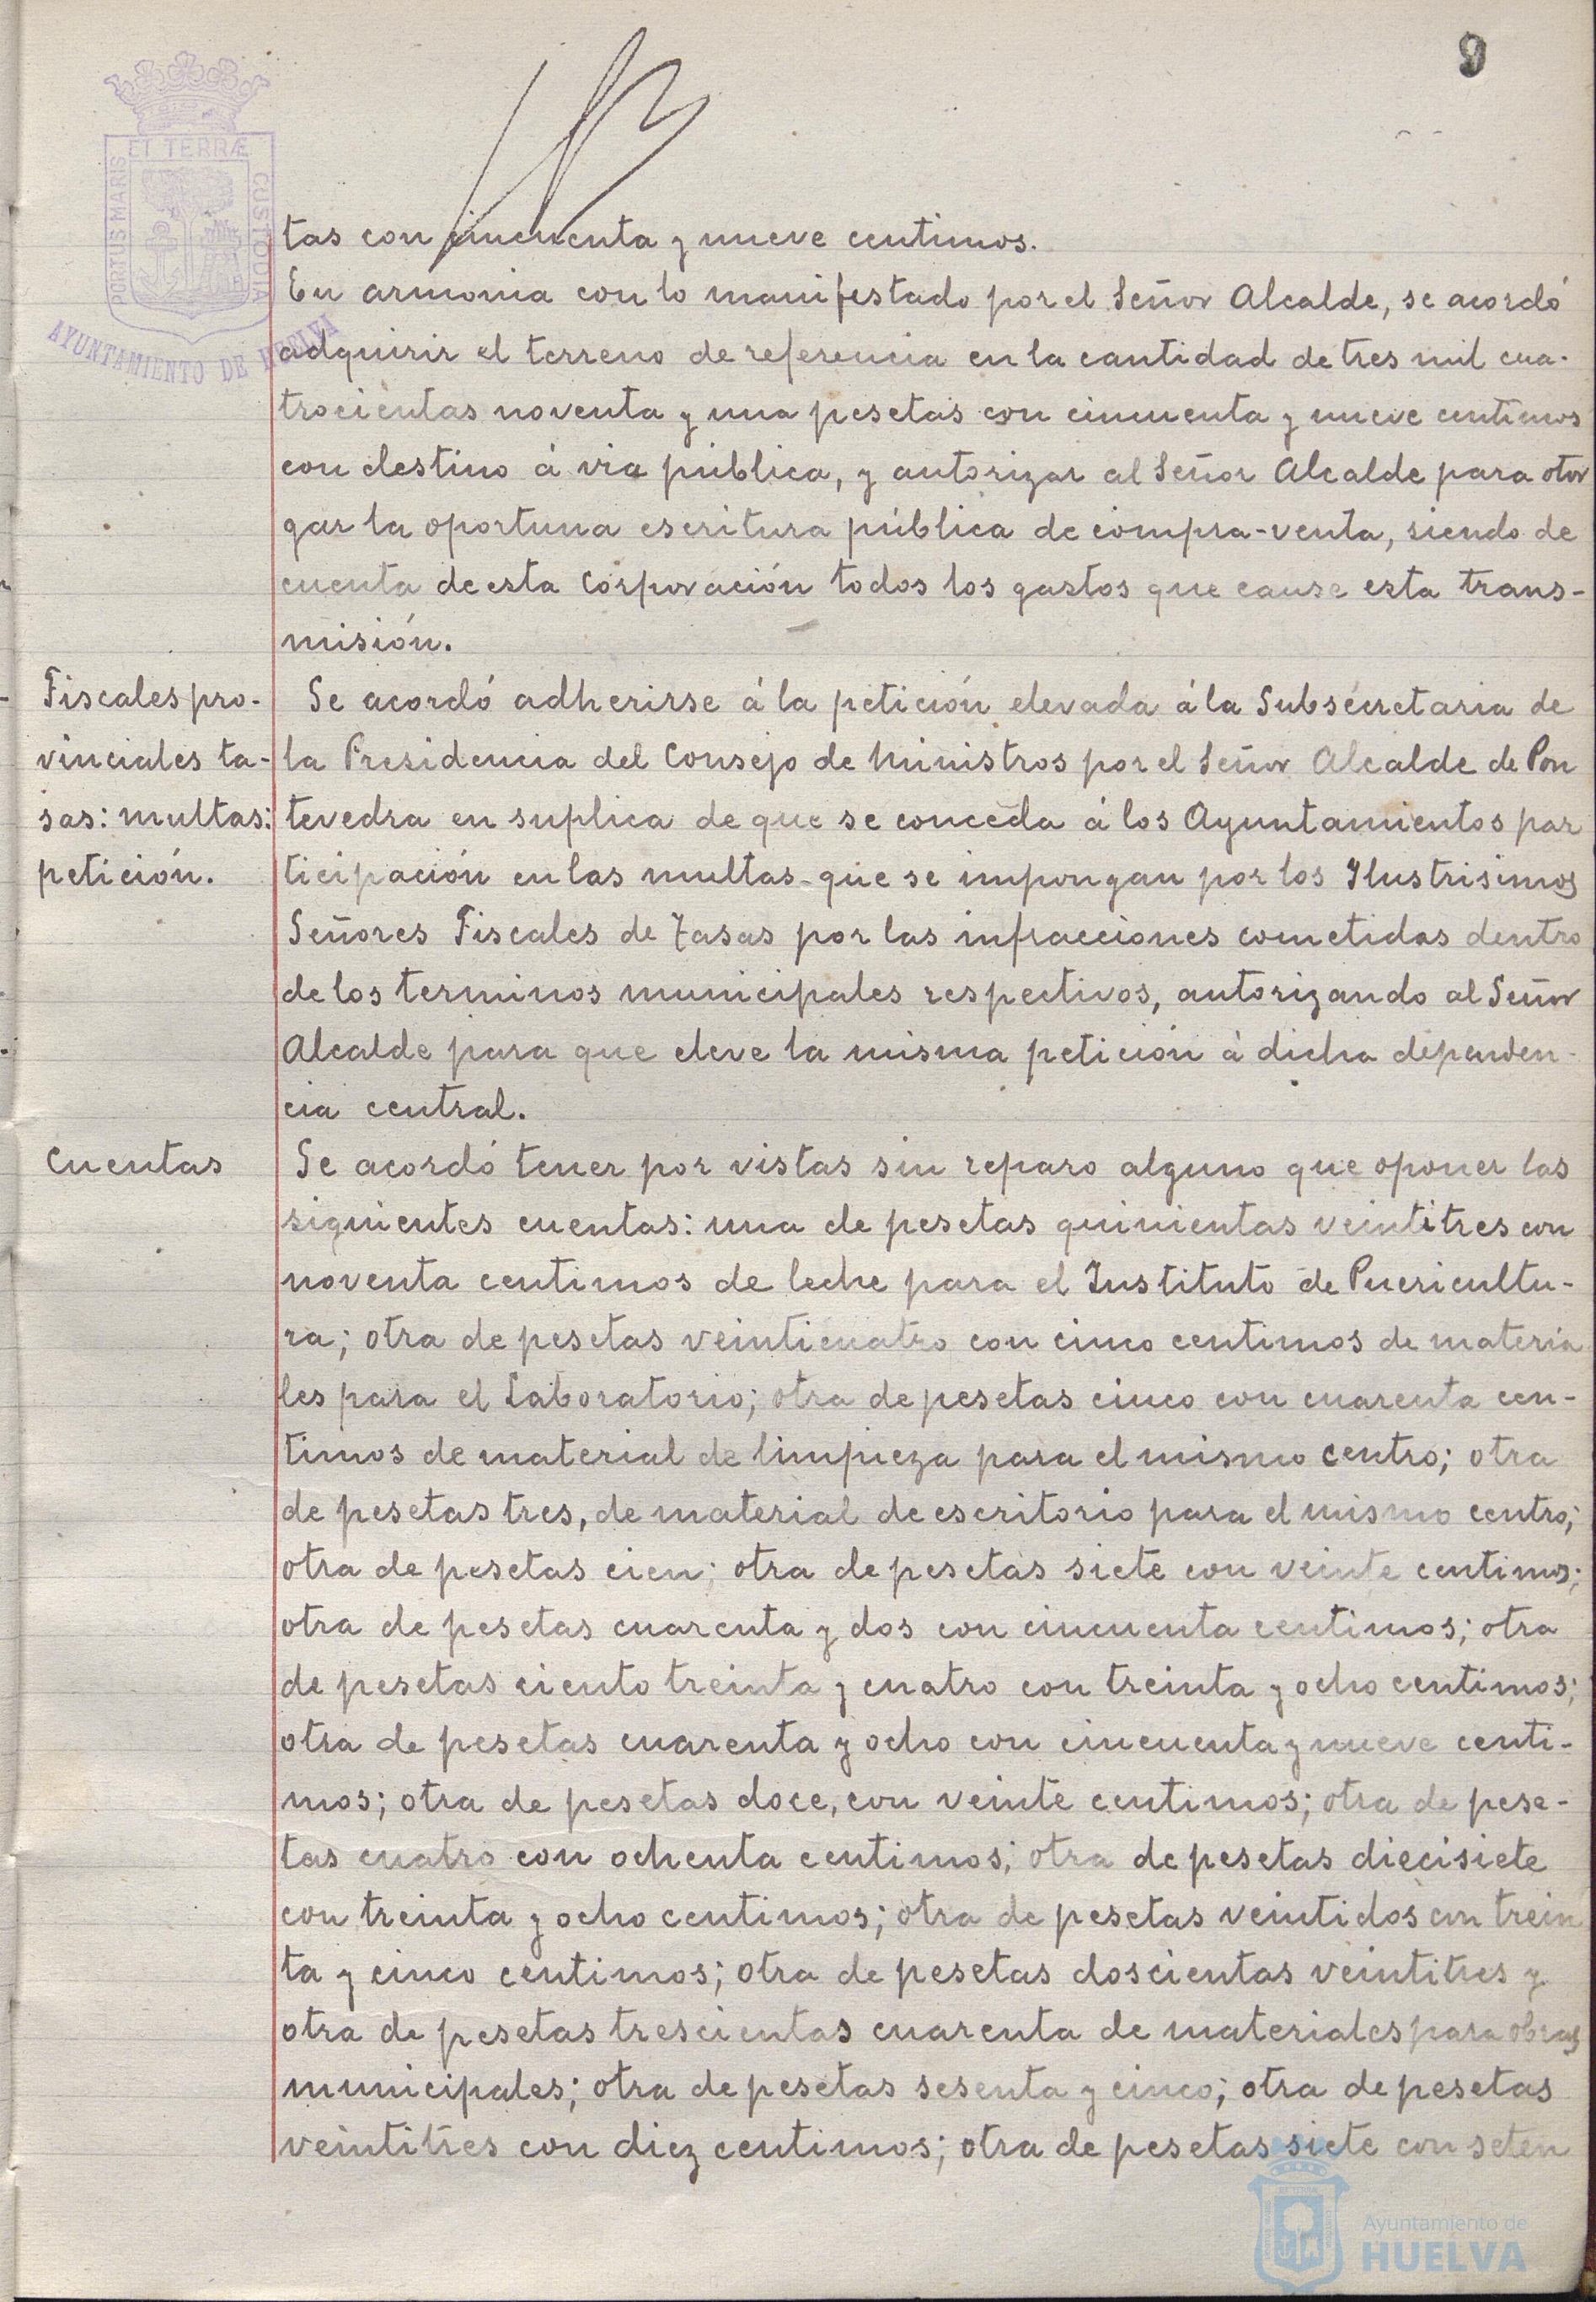 9
PORTUS MARIS
ET TERRÆ
CUSTODIA
AYUNTAMIENTO DE
tas con cincuenta y nueve centimos.
En armonia con lo manifestado por el Señor Alcalde, se acordó
adquirir el terreno de referencia en la cantidad de tres mil cua-
trocientas noventa y una pesetas con cincuenta y nueve centimos
con destino á via pública, y autorizar al Señor Alcalde para otor
gar la oportuna escritura pública de compra-venta, siendo de
cuenta de esta Corporación todos los gastos que cause esta trans-
misión.
Fiscales pro-
vinciales ta-
sas: multas:
petición.
Se acordó adherirse á la petición elevada á la Subsecretaria de
la Presidencia del Consejo de Ministros por el Señor Alcalde de Pon
tevedra en suplica de que se conceda á los Ayuntamientos par
ticipación en las multas que se impongan por los Ilustrisimos
Señores Fiscales de Tasas por las infracciones cometidas dentro
de los terminos municipales respectivos, autorizando al Señor
Alcalde para que eleve la misma petición á dicha dependen-
cia central.
Cuentas
Se acordó tener por vistas sin reparo alguno que oponer las
siguientes cuentas: una de pesetas quinientas veintitres con
noventa centimos de leche para el Instituto de Puericultu-
ra; otra de pesetas veinticuatro con cinco centimos de materia
les para el Laboratorio; otra de pesetas cinco con cuarenta cen-
timos de material de limpieza para el mismo centro; otra
de pesetas tres, de material de escritorio para el mismo centro;
otra de pesetas cien; otra de pesetas siete con veinte centimos;
otra de pesetas cuarenta y dos con cincuenta centimos; otra
de pesetas ciento treinta y cuatro con treinta y ocho centimos;
otra de pesetas cuarenta y ocho con cincuenta y nueve centi-
mos; otra de pesetas doce, con veinte centimos; otra de pese-
tas cuatro con ochenta centimos; otra de pesetas diecisiete
con treinta y ocho centimos; otra de pesetas veintidos con trein
ta y cinco centimos; otra de pesetas doscientas veintitres y
otra de pesetas trescientas cuarenta de materiales para obras
municipales; otra de pesetas sesenta y cinco; otra de pesetas
veintitres con diez centimos; otra de pesetas siete con seten
Ayuntamiento de
HUELVA